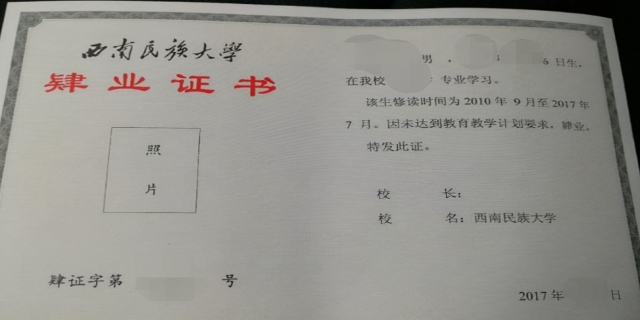 西南民族大学
肄业证书
照
片
肄证字第 号
男，
日生，
在我校 专业学习。
该生修读时间为 2010 年 9 月至 2017 年
7 月。因未达到教育教学计划要求，肄业，
特发此证。
校 长：
校 名：西南民族大学
2017 年 日